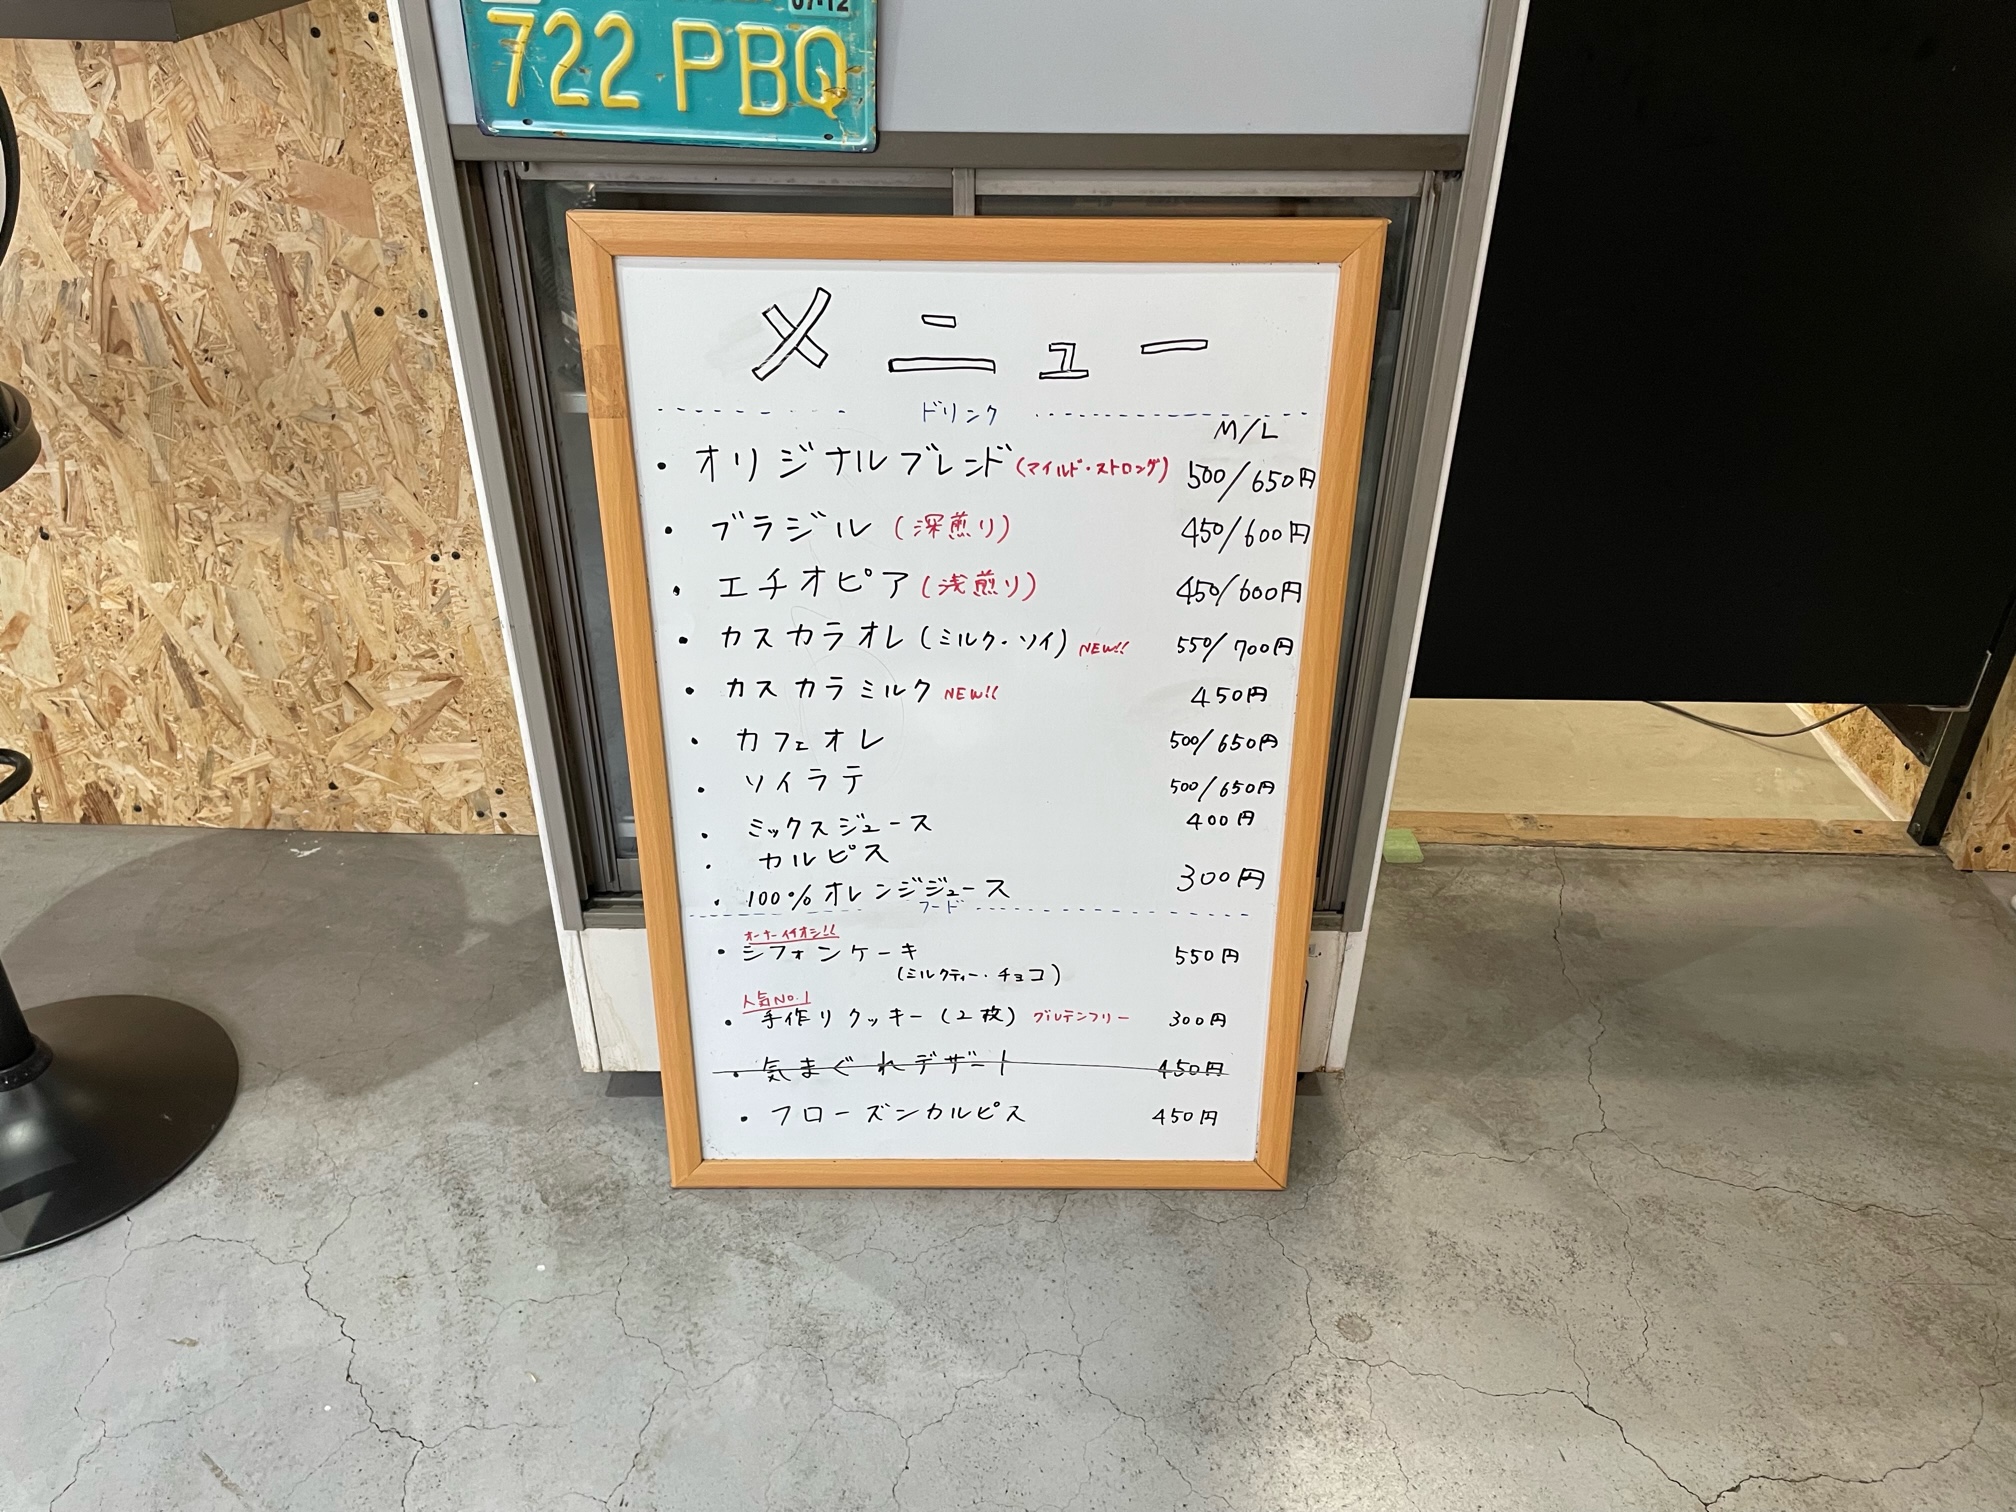 07-12
722 PBQ
メニュー
ドリンク
M/L
・オリジナルブレンド(マイルド・ストロング) 500/650円
・ブラジル(深煎り) 450/600円
・エチオピア(浅煎り) 450/600円
・カスカラオレ(ミルク・ソイ) NEW!! 550/700円
・カスカラミルク NEW!! 450円
・カフェオレ 500/650円
・ソイラテ 500/650円
・ミックスジュース 400円
・カルピス
・100%オレンジジュース 300円
フード
オーナーイチオシ!!
・シフォンケーキ 550円
(ミルクティー・チョコ)
人気NO.1
・手作りクッキー(2枚) グルテンフリー 300円
・気まぐれデザート 450円
・フローズンカルピス 450円